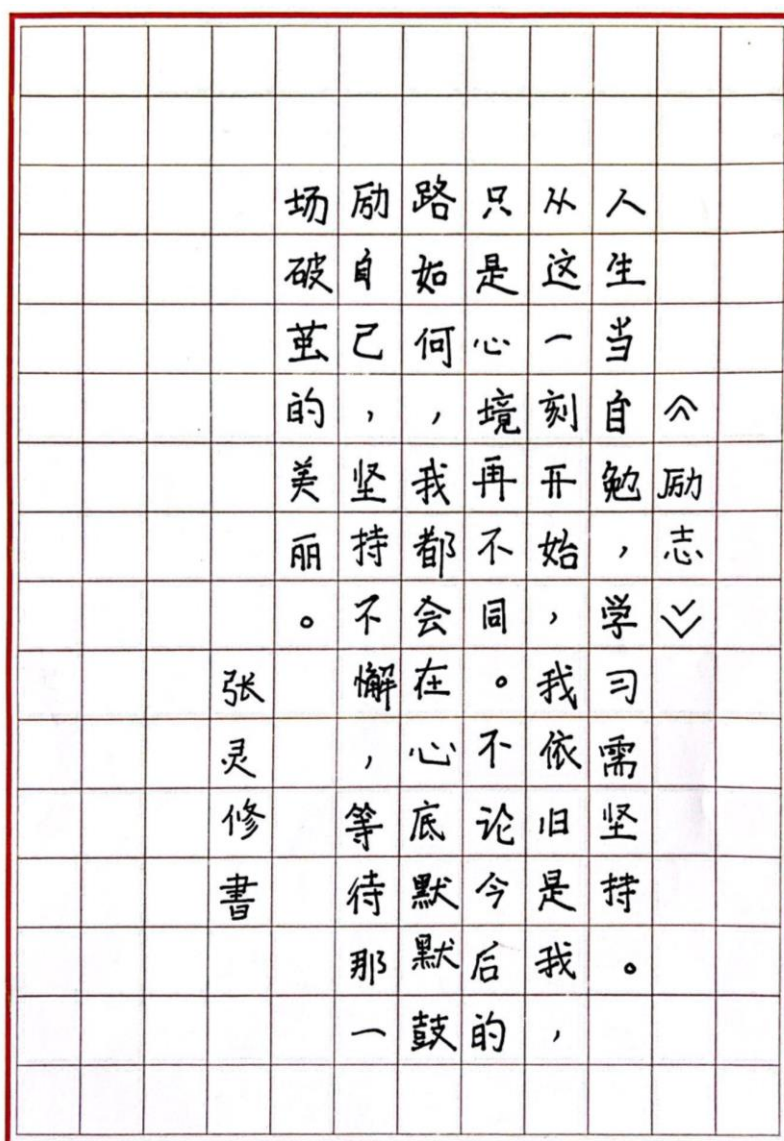 《励志》
人生当自勉，学习需坚持。
从这一刻开始，我依旧是我，
只是心境再不同。不论今后的
路如何，我都会在心底默默鼓
励自己，坚持不懈，等待那一
场破茧的美丽。
张灵修書